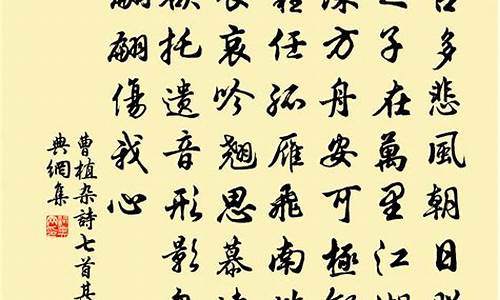 台多悲風朝日
之子在萬里江湖
深方舟安可極
任孤雁飛南
長哀吟翹思慕遠
欲托遺音形影
翩翩傷我心
曹植杂詩七首其
典網集